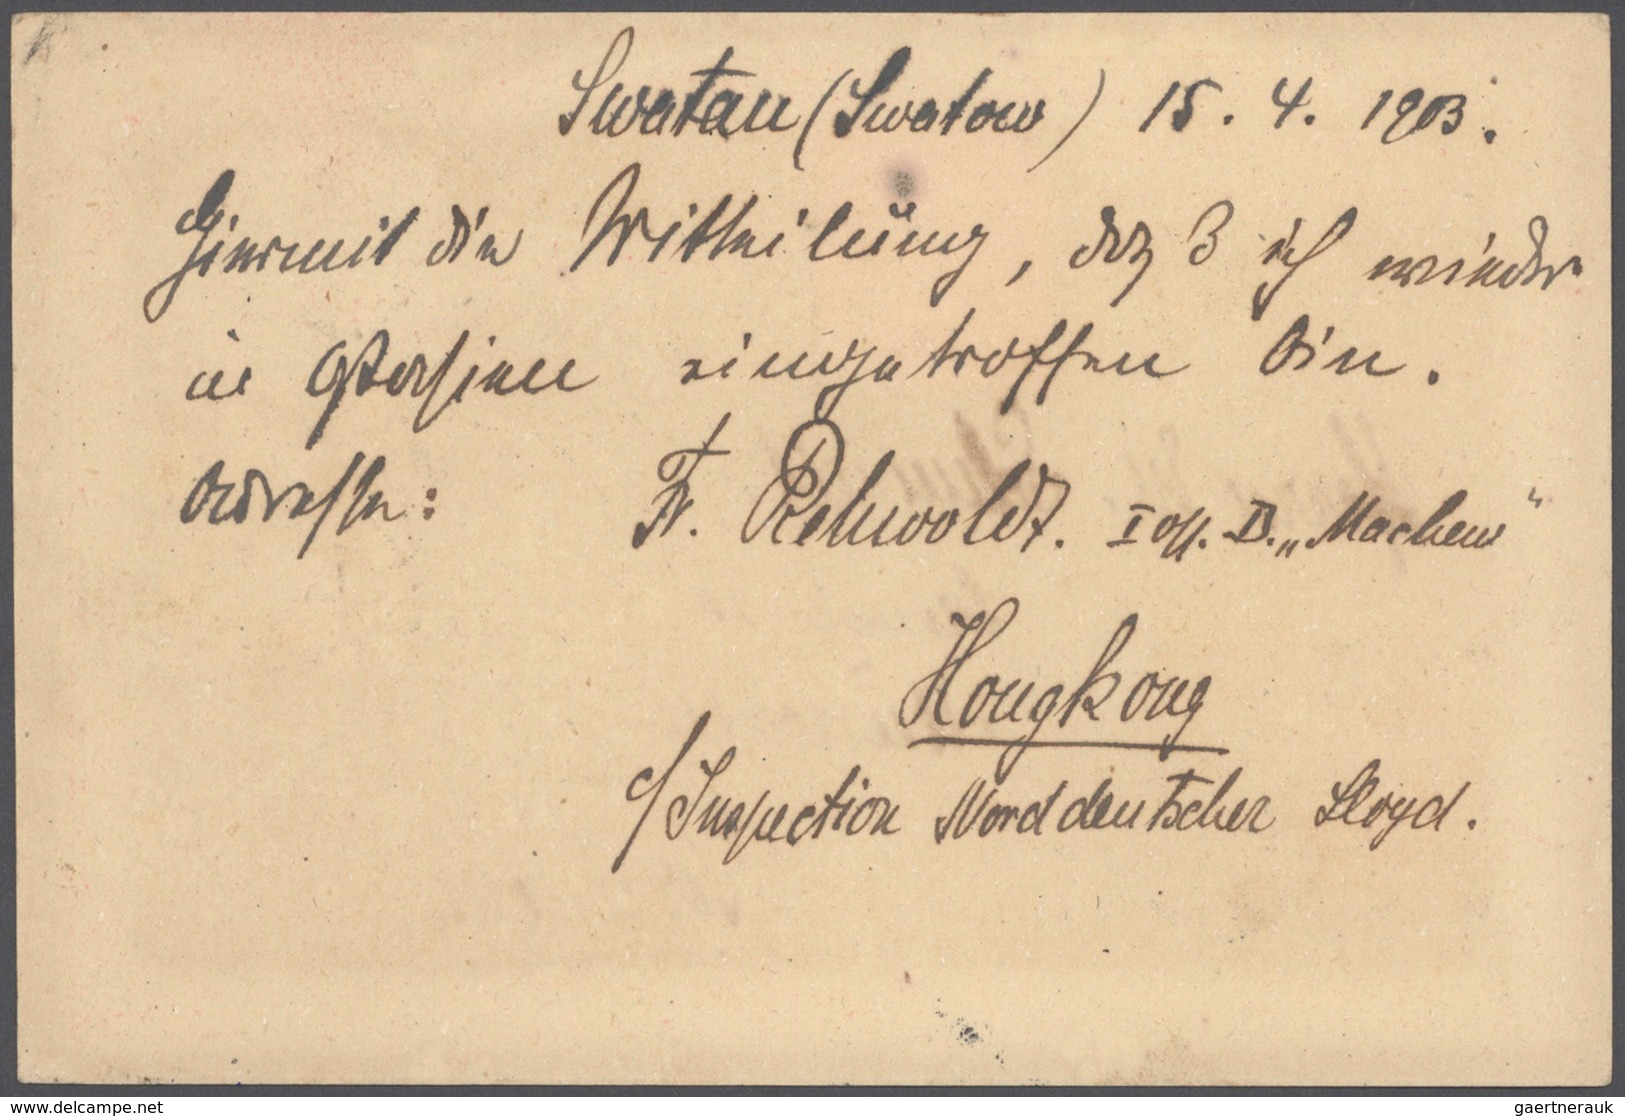 Swatau (Swatow) 15. 4. 1903.
Hiermit die Mitteilung, daß ich wieder
in Ostasien eingetroffen bin.
Adresse: Fr. Rehwoldt. I Off. D. „Machew“
Hongkong
c/ Inspection Norddeutscher Lloyd.
© www.delcampe.net
gaertnerauk